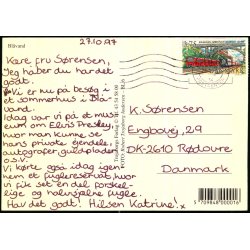 Blåvand
27.10.97
Kære fru Sørensen,
Jeg håber du har det
godt.
Vi er nu på besøg i
et sommerhus i Blå-
vand.
Idag var vi på et mus-
eum om Elvis Presley,
hvor man kunne se
hans private ejendele,
autografer, guldpladen
o.s.v.
Vi kørte også idag igen-
nem et fuglereservat, hvor
vi fik set en del forskel-
lige og halvsjælne fugle.
Hav det godt! Hilsen Katrine!
K. Sørensen
Engbovej, 29
DK-2610 Rødovre
Danmark
5 709848 000016